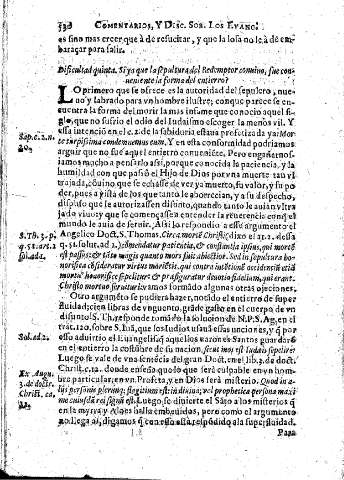 COMENTARIOS, Y DISC. SOB. LOS EVANG.
es sino mas creer que à de resucitar, y que la losa no le à de em-
baraçar para salir.
Dificultad quinta. Si ya que la sepultura del Redemptor convino, fue con-
veniente la forma del entierro?
LO primero que se ofrece es la autoridad del sepulcro, nue-
uo y labrado para vn hombre ilustre; con que parece se en-
cuentra la forma del morir la mas infame que conocio aquel si-
glo, que no sufrio el odio del Iudaismo escoger la menos vil. Y
essa intencion en el c. 2. de la sabiduria estaua profetizada ya: Mor
Sap. c. 2. n.
te turpissima condemnemus eum. Y en esta conformidad podriamos
arguir que no fue aquel entierro conveniente. Pero engañarno-
iamos mucho a pensarlo assi, porque conocida la paciencia, y la
humildad con que passò el Hijo de Dios por vna muerte tan vl
trajada, conuino que se echasse de ver ya muerto, su valor, y su po
der, pues a vista de los que tanto le aborrecian, y a su despecho,
dispuso que le autorizassen difunto, quando tanto le auian vltra
jado viuo: y que se començassen a entender la reuerencia con que el
mundo le auia de seruir. Assi lo respondio a esse argumento el
S. Th. 3. p.
Angelico Doct. S. Thomas. Circa mortē Christi (dixo el ar. 2. dessa
q. 51. solut. ad 2.) commendatur patientia, & constantia ipsius, qui mortē
est passus; & tāto magis quanto mors fuit abiectior. Sed in sepultura ho-
norifica consideratur virtus morientis, qui contra intentionē occidentiū etiā
mortuus honorificè sepelitur: & præfiguratur deuotio fidelium, qui erant
Christo mortuo seruituri:
Otro argumēto se pudiera hazer, notādo el entierro de super
fluidad; cien libras de vnguento, gràde gasto en el cuerpo de vn
difunto S. Th. responde tomādo la solucion de N. P. S. Ag. en el
trat. 120. sobre S. Iuā, que los Iudios usauā essas unciones, y q̄ por
Sol. ad. 2.
esso aduirtio el Euangelista q̄ aquellos varones Santos guardarō
en el entierro la costūbre de su nacion, sicut mos est Iudæis sepelire.
Luego se vale de vna sentēcia del gran Doct. en el lib. 3. de doct.
Ex Augu.
Christ. c. 12. donde enseña q̄ lo que serà culpable en vn hom-
3. de doctr.
bre particular; en vn Profeta, y en Dios serà misterio.
Christ. ca,
12.
Luego se diuierte el Sāto a los misterios q̄
en la myrra y aloes halla embeuidos, pero como el argumento
no llega ai, digamos q̄ con esso està respōdido a la superfluidad.
Para